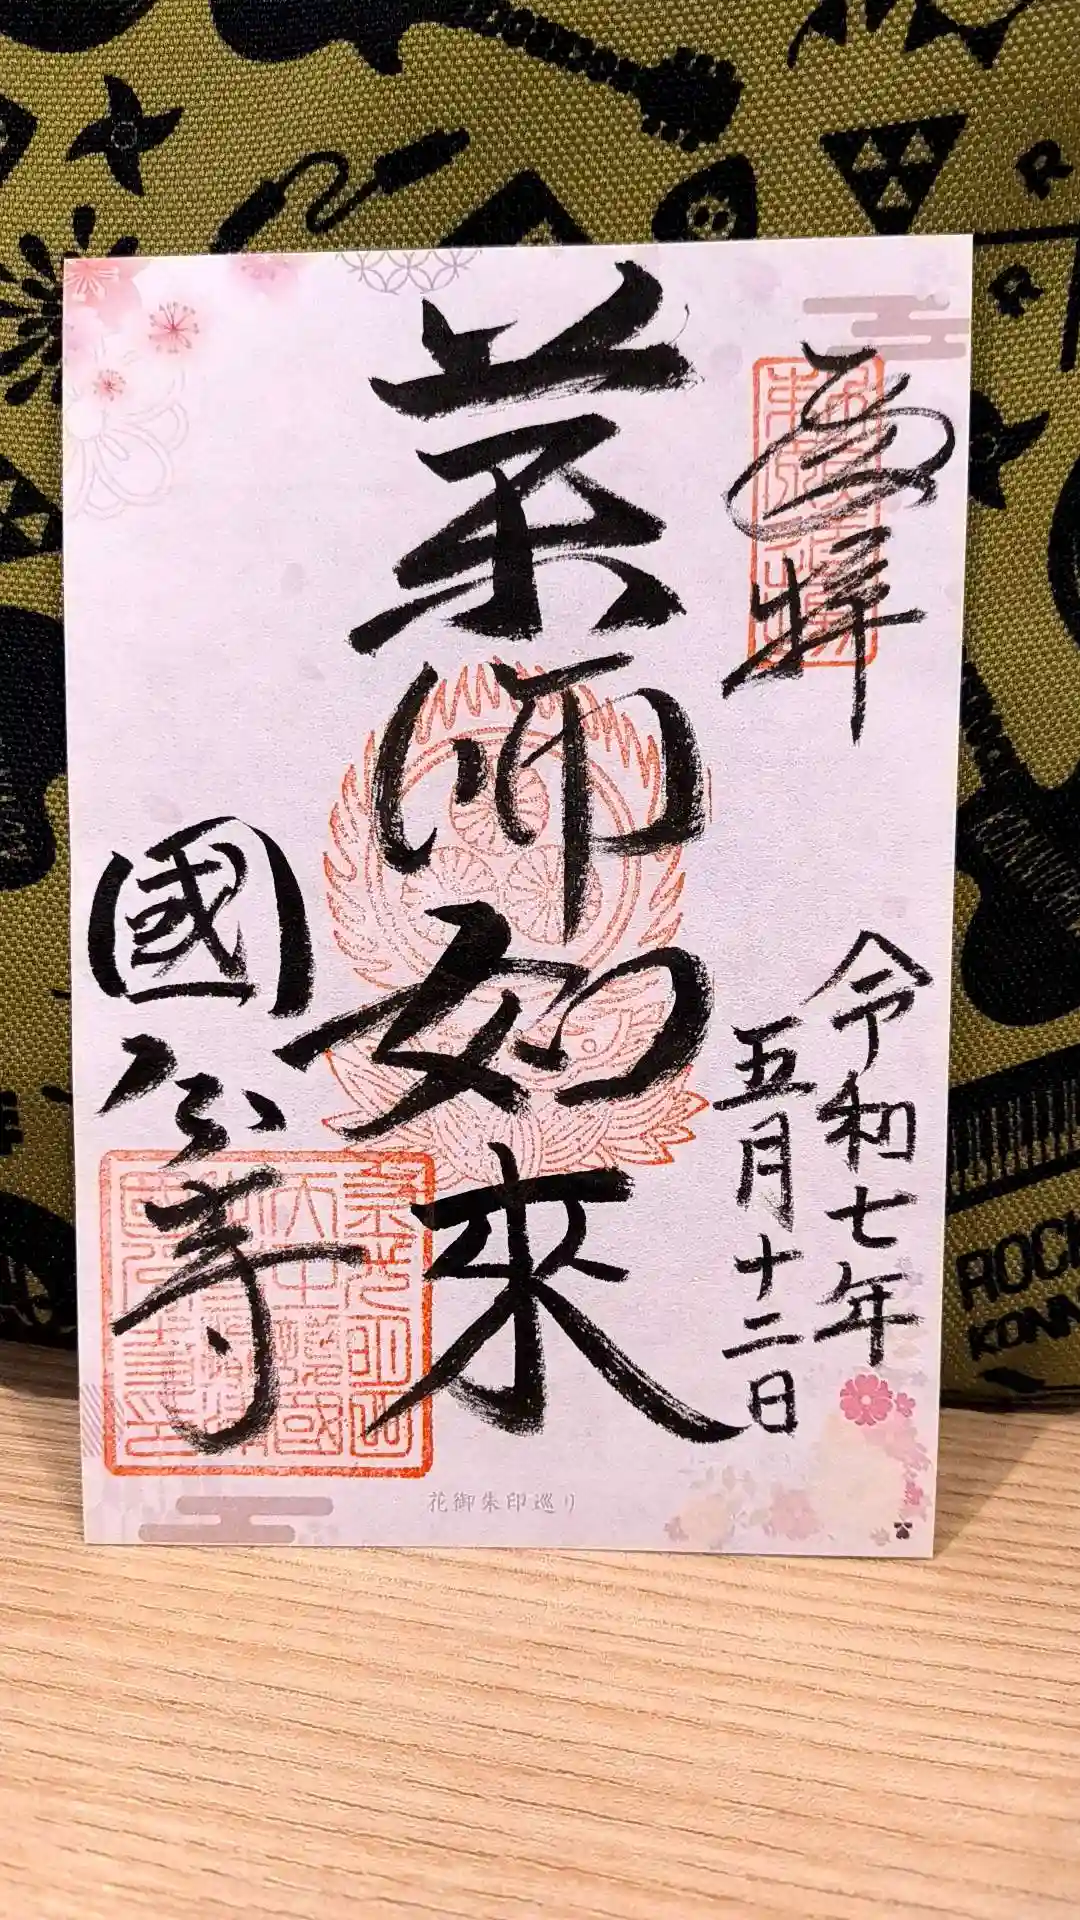 奉拝
令和七年
五月十二日
薬師如來
國分寺
花御朱印巡り